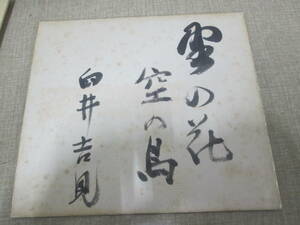 野の花
空の鳥
臼井吉見